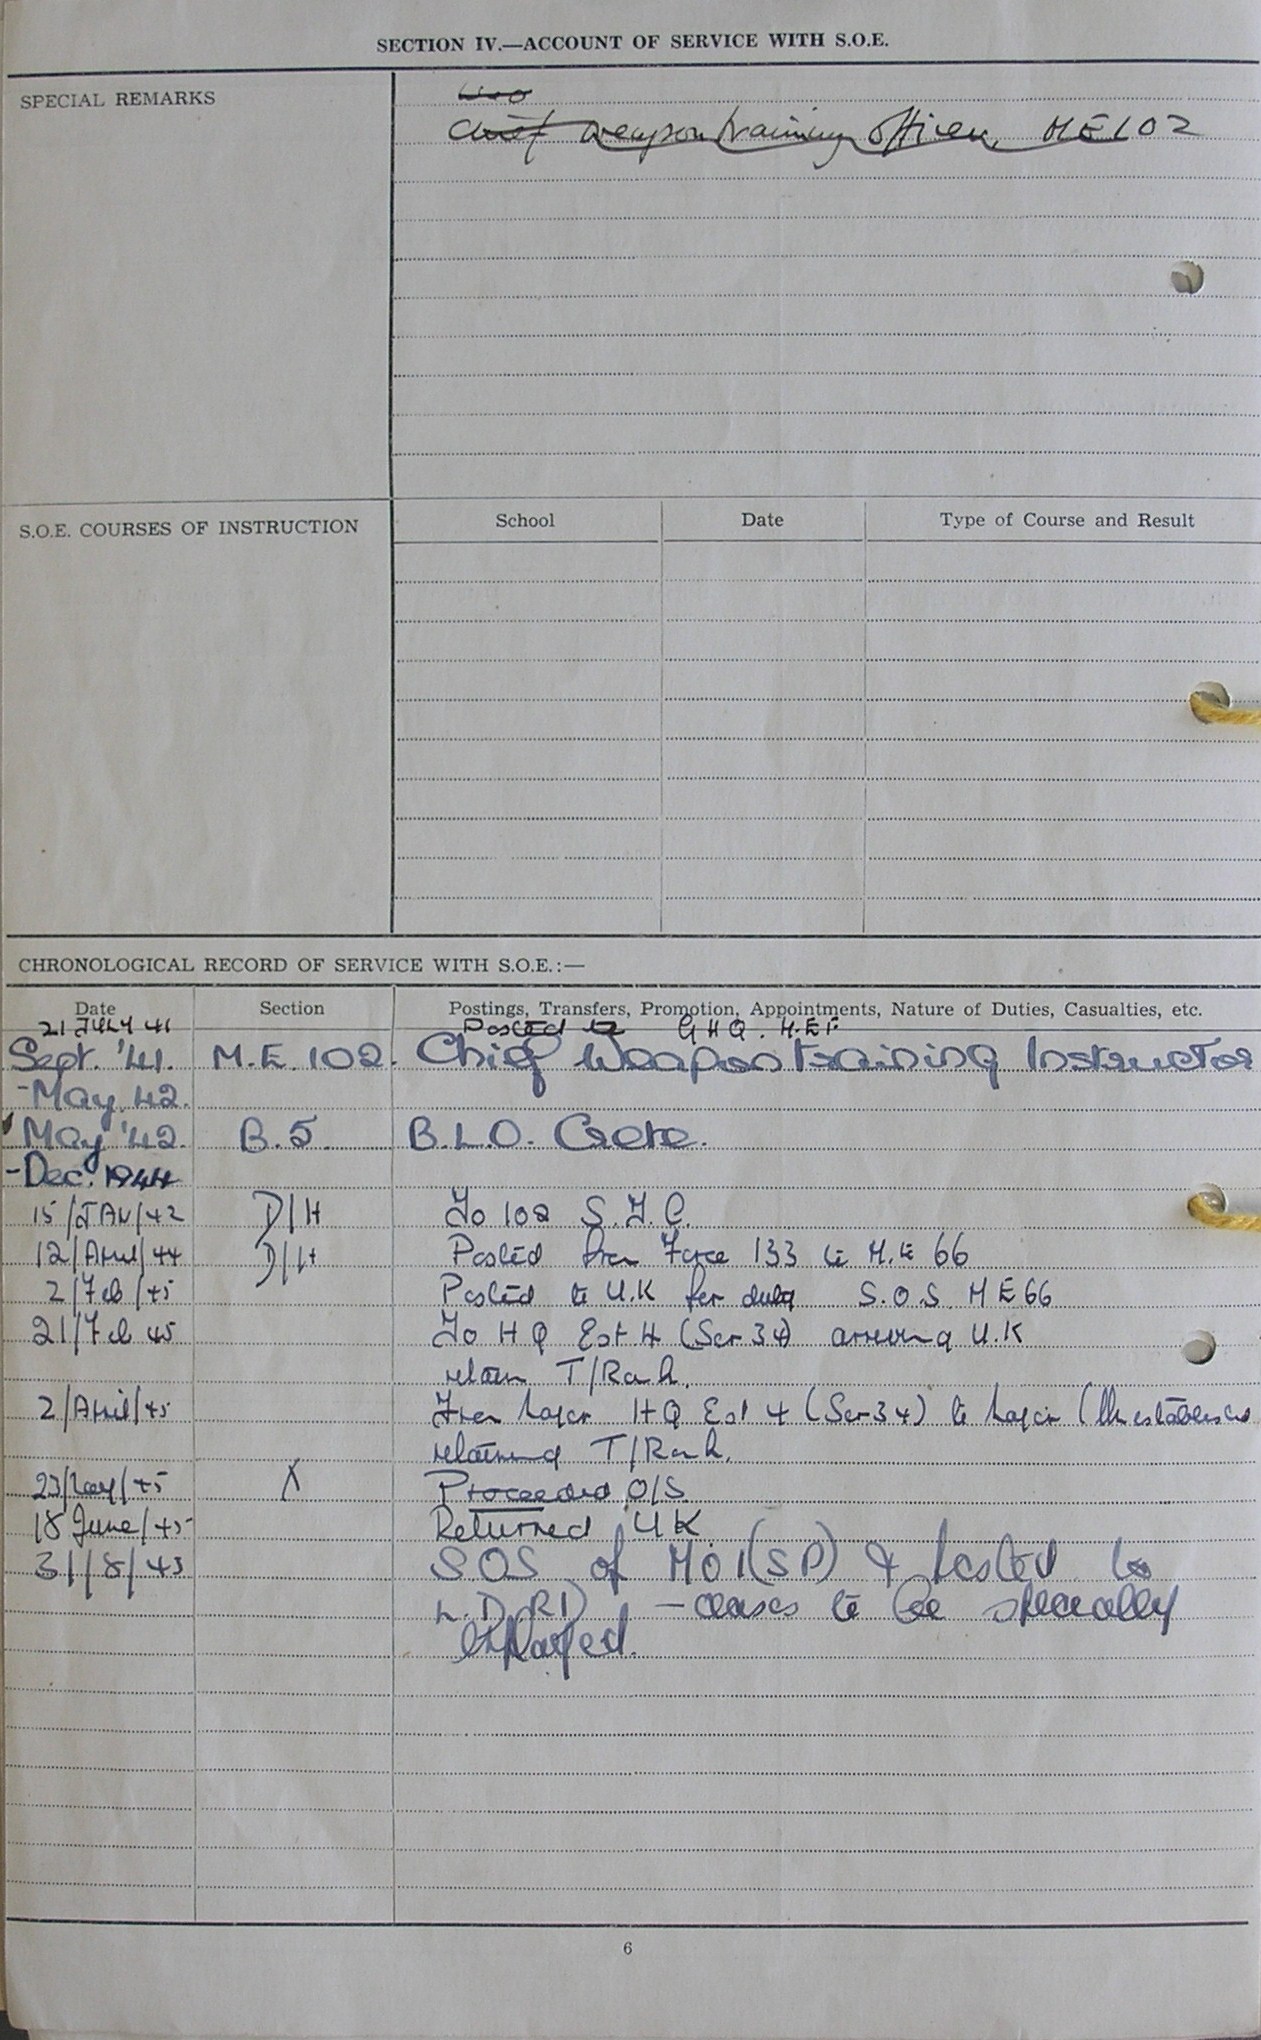 SECTION IV.—ACCOUNT OF SERVICE WITH S.O.E.
SPECIAL REMARKS
Chief Weapon training officer, ME102
S.O.E. COURSES OF INSTRUCTION
School Date Type of Course and Result
CHRONOLOGICAL RECORD OF SERVICE WITH S.O.E.:—
Date Section Postings, Transfers, Promotion, Appointments, Nature of Duties, Casualties, etc.
21 JULY 41 Posted to GHQ. M.E.F
Sept. '41. M.E. 102. Chief Weapon training Instructor
-May. 42.
May '42. B.5. B.L.O. Crete.
-Dec. 1944
15/JAN/42 D/H To 102 S.T.C.
12/April/44 D/H Posted from Force 133 to M.E 66
2/Feb/45 Posted to U.K for duty S.O.S. ME66
21/Feb 45 To HQ Est H (Ser 34) arriving U.K
retain T/Rank.
2/April/45 From Major HQ Est 4 (Ser 34) to Major
retaining T/Rank.
23/May/45 X Proceeded O/S
18 June/45 Returned UK
31/8/45 SOS of MO1(SP) & posted to
- ceases to be specially
employed.
6